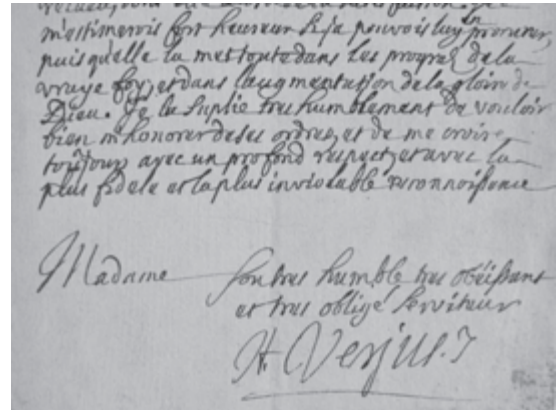 m'estimerois fort heureux si je pouvois luy en procurer,
puis qu'elle la met toute dans les progrez de la
vraye foy, et dans l'augmentation de la gloire de
Dieu. Je la suplie tres humblement de vouloir
bien m'honorer de ses ordres, et de me croire
toûjours avec un profond respect, et avec la
plus fidele et la plus inviolable reconnoissance
Madame son tres humble tres obeissant
et tres obligé serviteur
A. Verjus. J